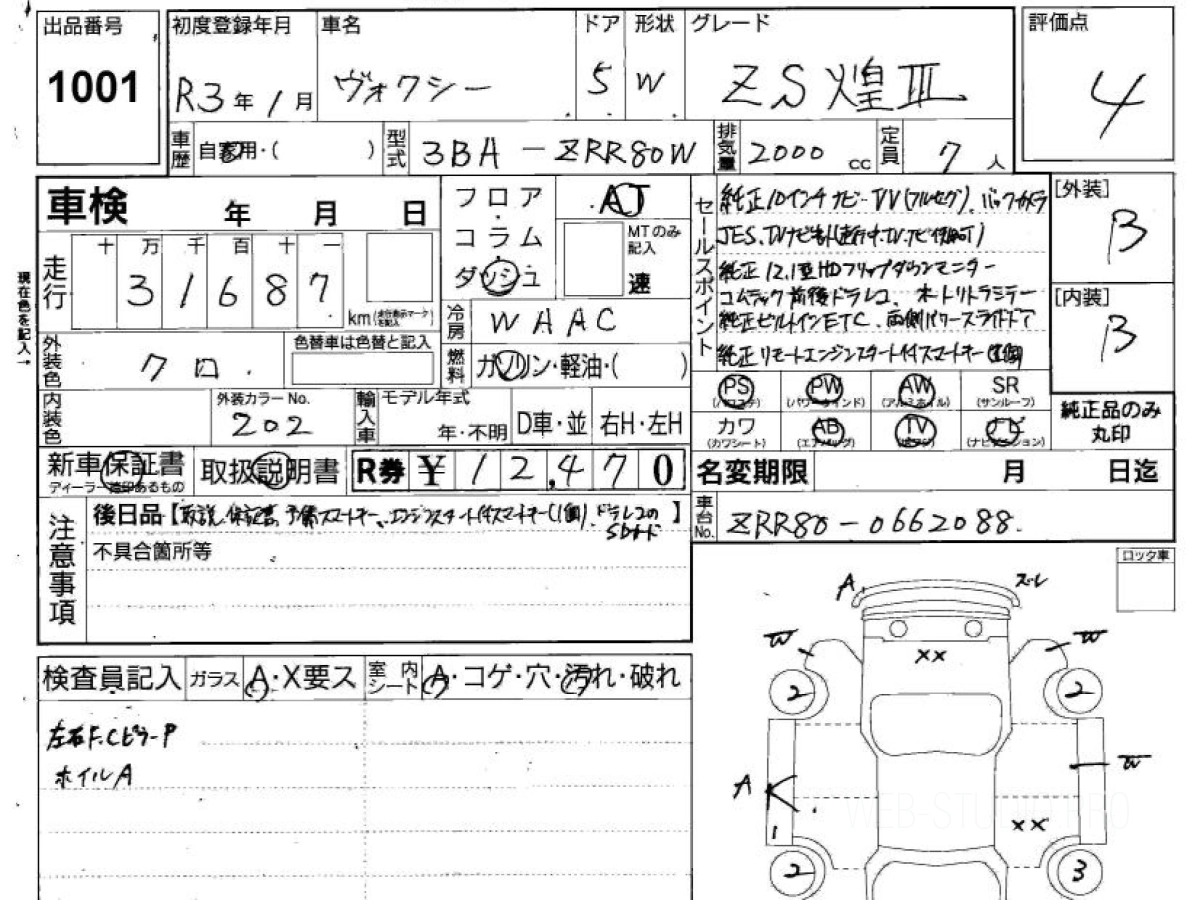 出品番号
1001
初度登録年月
R3年1月
車名
ヴォクシー
ドア
5
形状
W
グレード
ZS煌III
評価点
4
車歴
自家用・( )
型式
3BA-ZRR80W
排気量
2000 cc
定員
7人
車検 年 月 日
フロア・コラム・ダッシュ
AT
MTのみ記入
速
現在色を記入→
走行
十万千百十一
31687
km
冷房
WHAC
外装色
クロ
色替車は色替と記入
燃料
ガソリン・軽油・( )
内装色
外装カラーNo.
202
輸入車
モデル年式
年・不明
D車・並
右H・左H
新車保証書
取扱説明書
R券 ¥12,470
セールスポイント
純正10インチナビ・TV(フルセグ)、バックカメラ
純正12.1型HDフリップダウンモニター
コムテック前後ドラレコ、オートリトラミラー
純正ビルトインETC、両側パワースライドドア
純正リモートエンジンスタート付スマートキー(1個)
[外装]
B
[内装]
B
PS (パワステ)
PW (パワーウインド)
AW (アルミホイル)
SR (サンルーフ)
カワ (カワシート)
AB (エアバッグ)
TV
ナビ (ナビゲーション)
純正品のみ丸印
名変期限 月 日迄
車台No.
ZRR80-0662088.
注意事項
後日品【取説、保証書、予備スマートキー、エンジンスタート付スマートキー(1個)、ドラレコのSDカード】
不具合箇所等
ロック車
検査員記入
ガラス
A・X要ス
室内シート
A・コゲ・穴・汚れ・破れ
左右F、CピラーP
ホイルA
A
ズレ
W
W
XX
2
2
A
W
1
XX
2
3
WEB-STUDIO.PRO